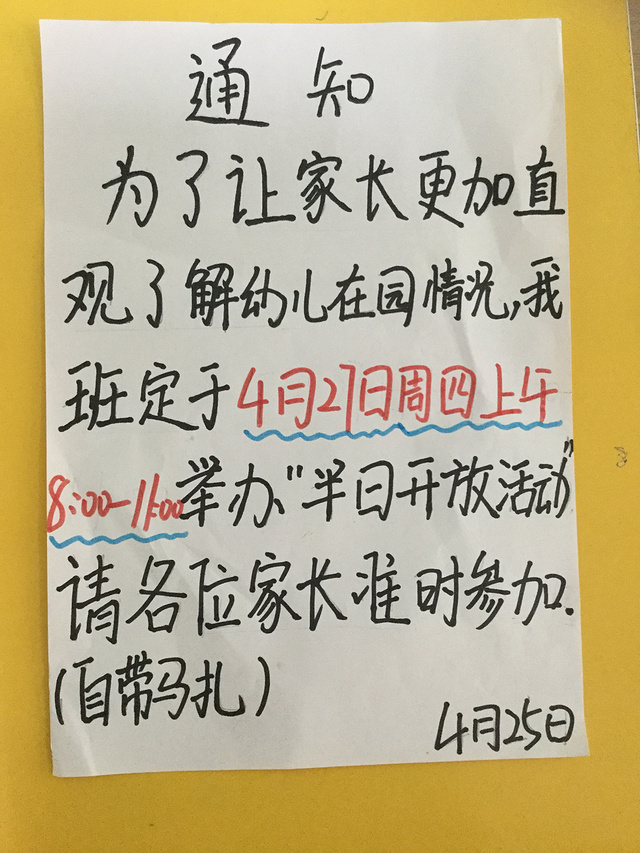 通知
为了让家长更加直
观了解幼儿在园情况,我
班定于4月27日周四上午
8:00-11:00举办“半日开放活动”
请各位家长准时参加.
(自带马扎)
4月25日